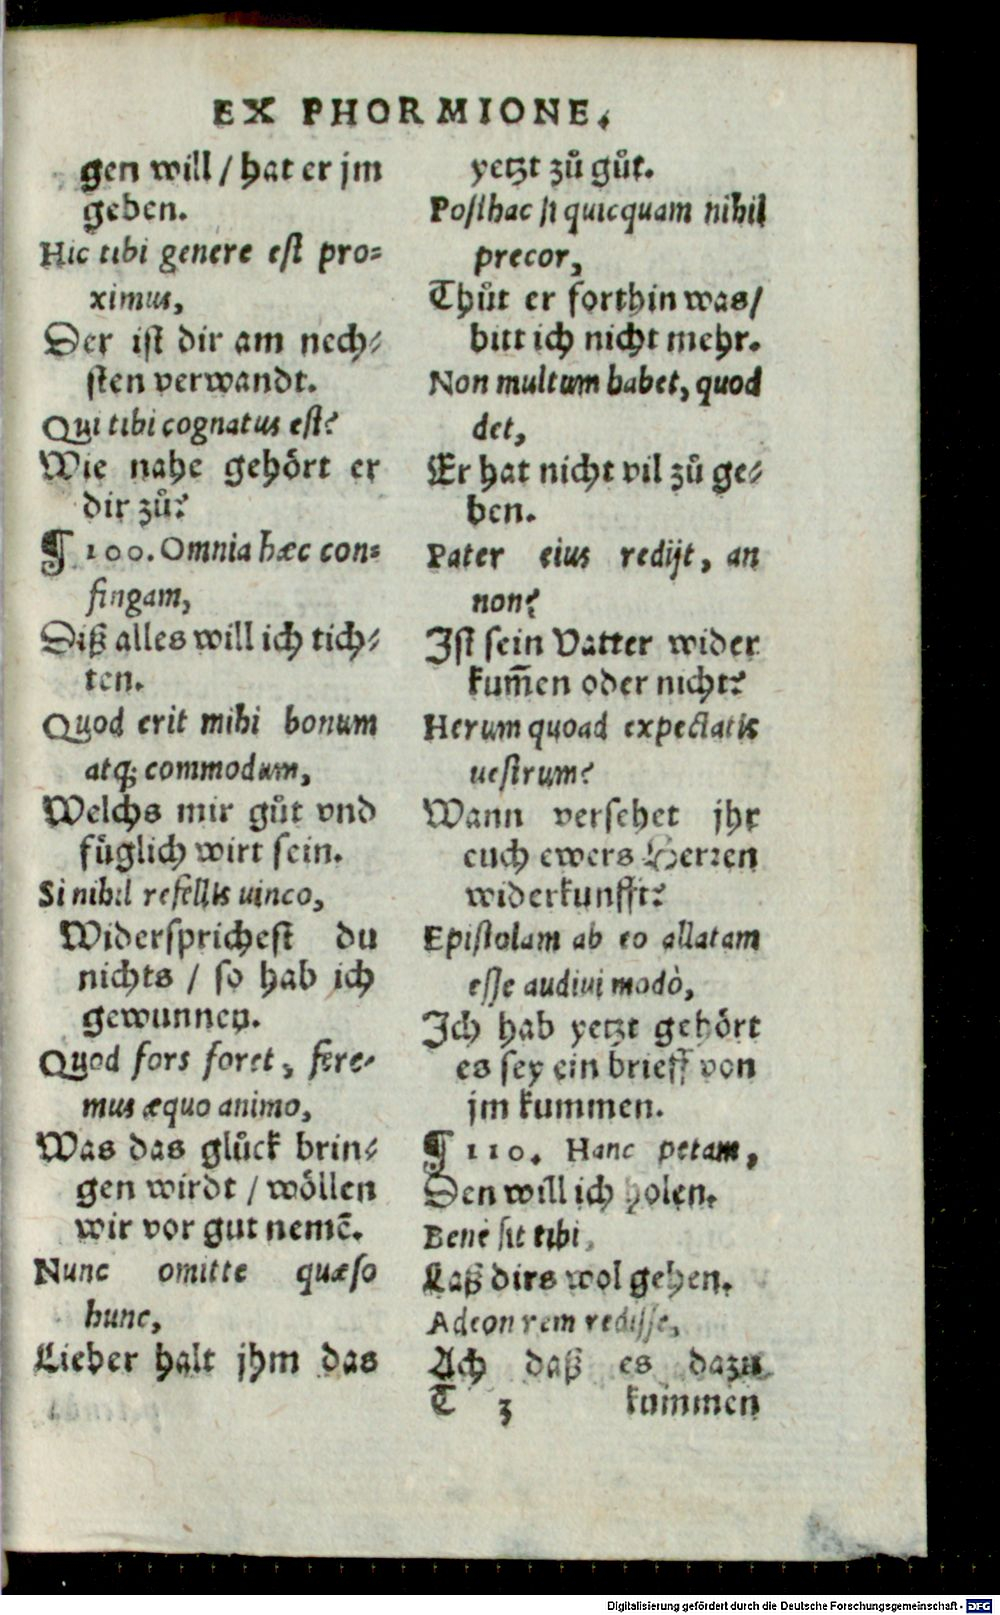 EX PHORMIONE.
gen will / hat er jm
geben.
Hic tibi genere est pro-
ximus,
Der ist dir am nech-
sten verwandt.
Qui tibi cognatus est?
Wie nahe gehört er
dir zů?
¶ 100. Omnia hæc con-
fingam,
Diß alles will ich tich-
ten.
Quod erit mihi bonum
atq; commodum,
Welchs mir gůt vnd
füglich wirt sein.
Si nihil refellis uinco,
Widersprichest du
nichts / so hab ich
gewunnen.
Quod fors foret, fere-
mus æquo animo,
Was das glück brin-
gen wirdt / wöllen
wir vor gut nemē.
Nunc omitte quæso
hunc,
Lieber halt jhm das
yetzt zů gůt.
Posthac si quicquam nihil
precor,
Thůt er forthin was /
bitt ich nicht mehr.
Non multum habet, quod
det,
Er hat nicht vil zů ge-
ben.
Pater eius redijt, an
non?
Ist sein Vatter wider
kum̄en oder nicht?
Herum quoad expectatis
uestrum?
Wann versehet jhr
euch ewers Herren
widerkunfft?
Epistolam ab eo allatam
esse audiui modò,
Ich hab yetzt gehört
es sey ein brieff von
jm kummen.
¶ 110. Hanc petam,
Den will ich holen.
Bene sit tibi,
Laß dirs wol gehen.
Adeon rem redisse,
Ach daß es dazu
T 3 kummen
Digitalisierung gefördert durch die Deutsche Forschungsgemeinschaft - DFG